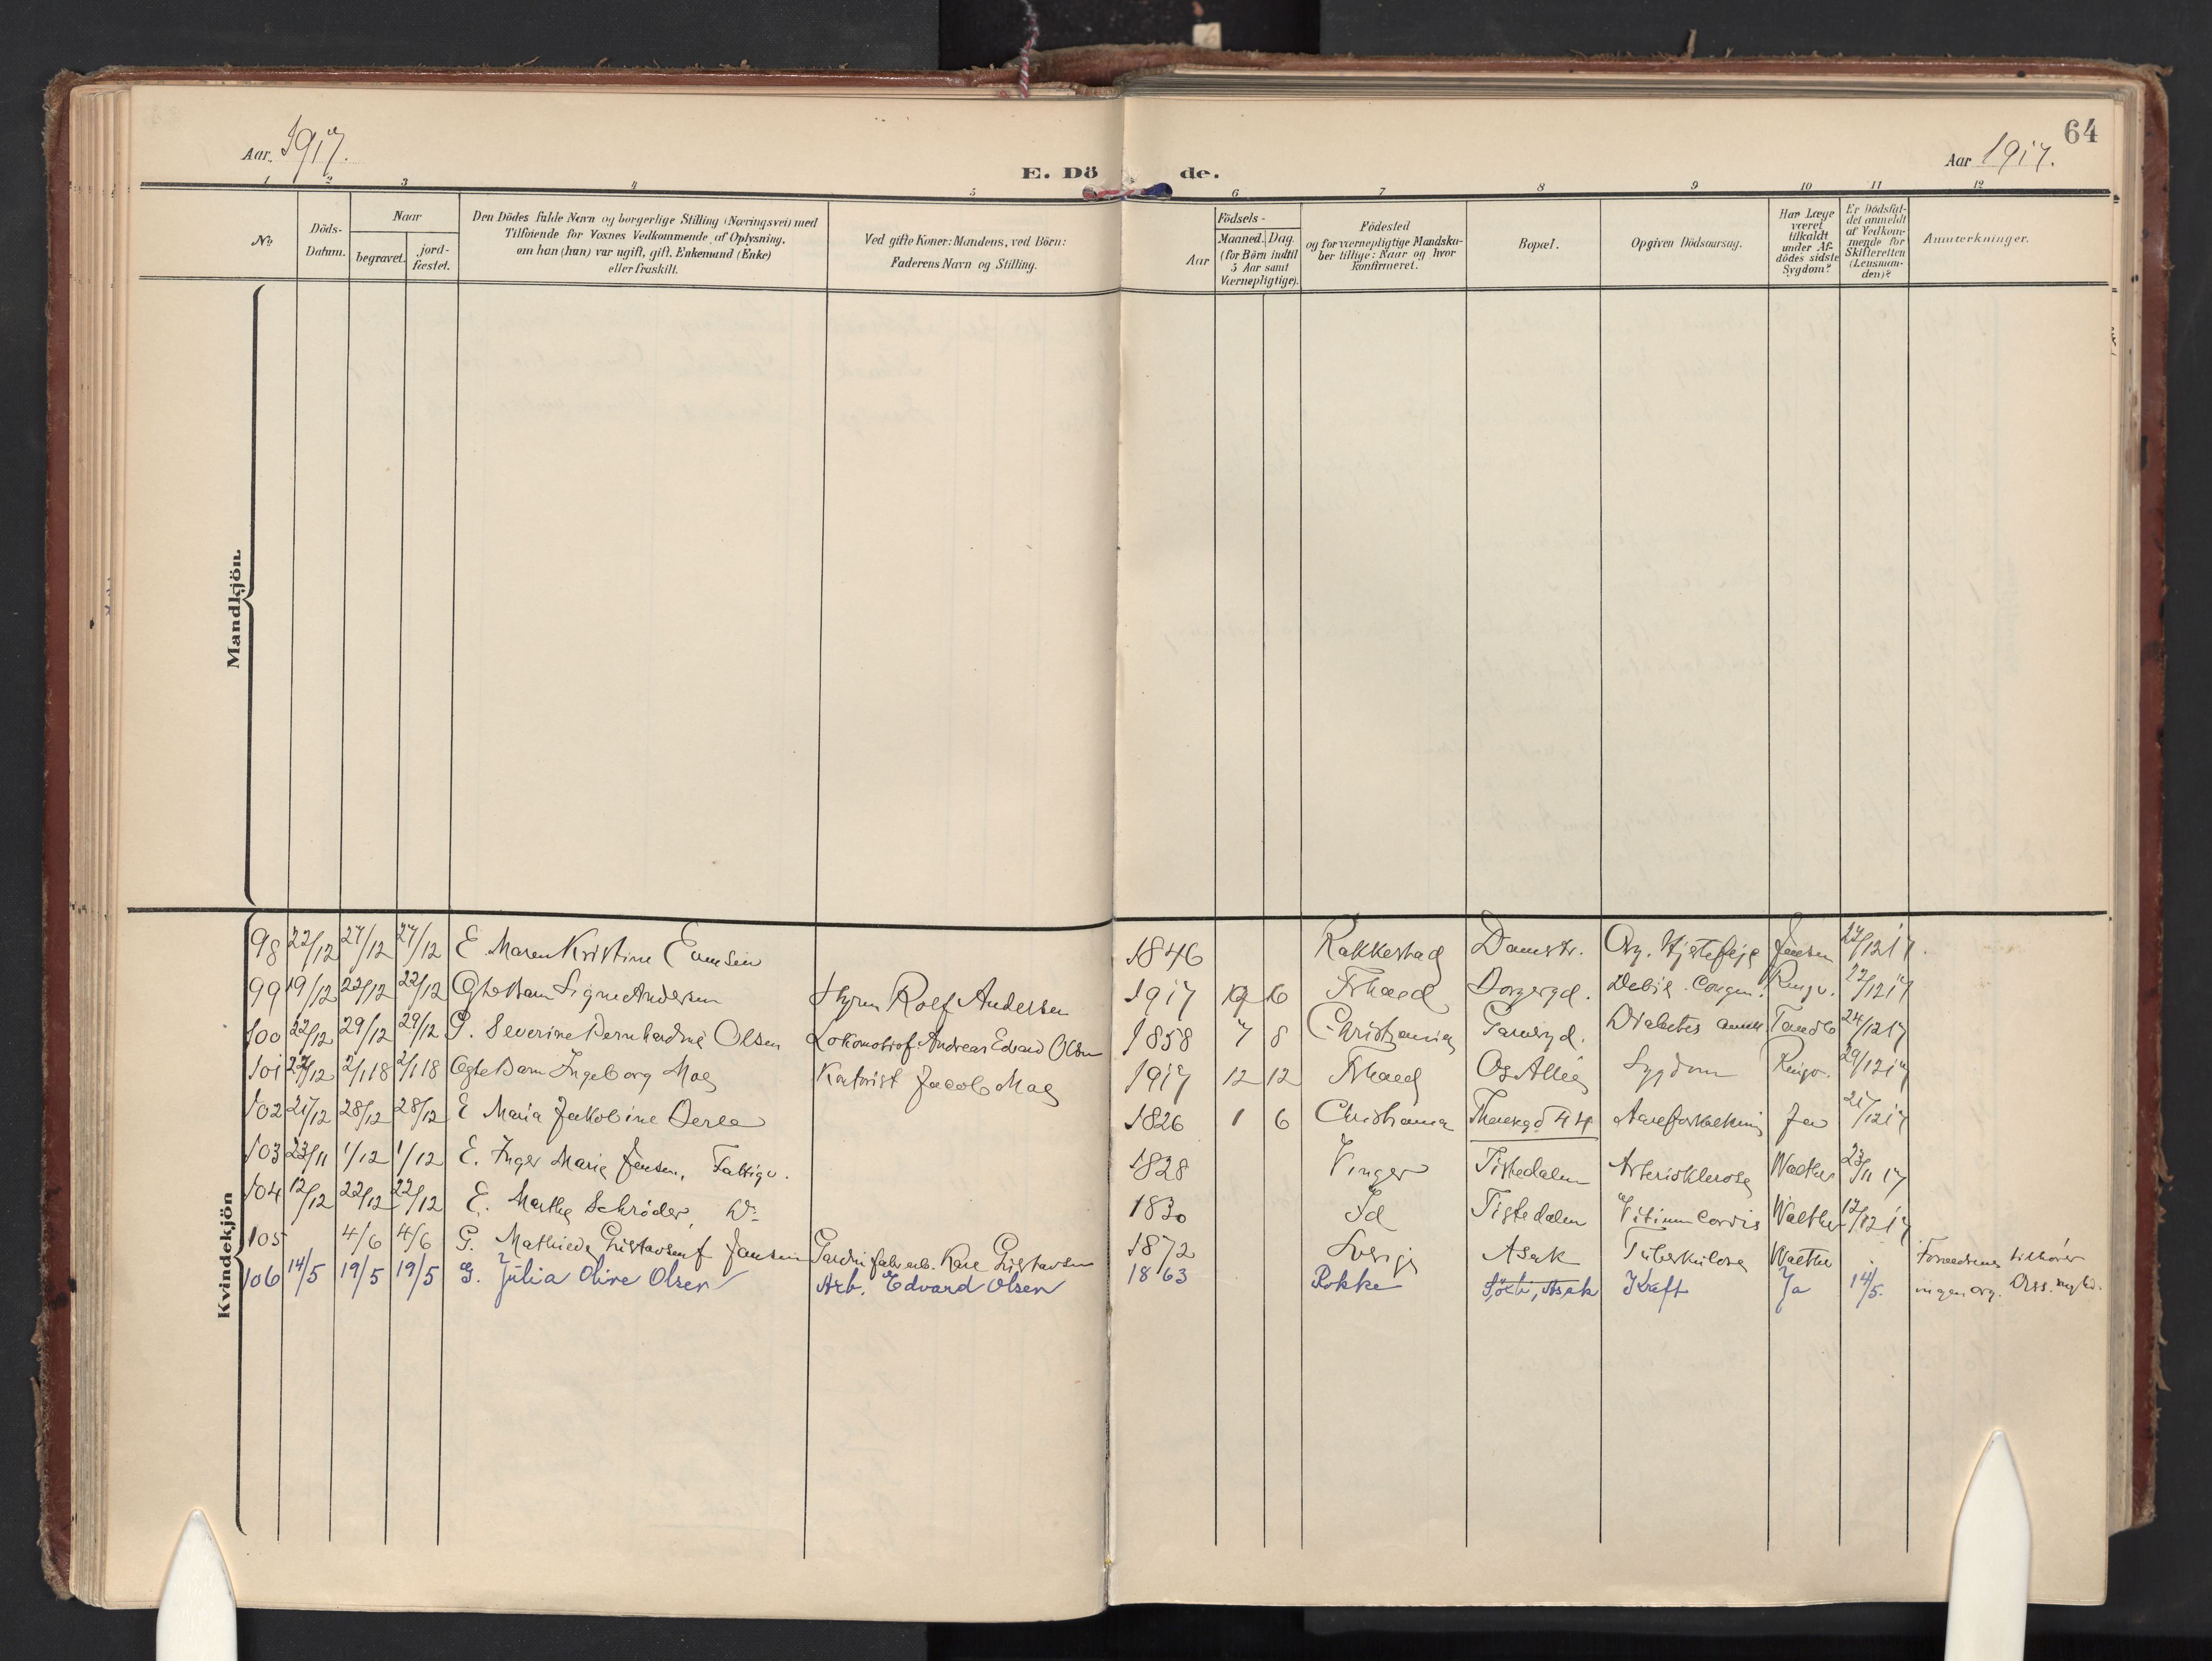 64
Aar. 1917.
E. Dö de.
Aar 1917.
1 2 3 4 5 6 7 8 9 10 11 12
No
Döds-Datum.
Naar
begravet.
jord-fæstet.
Den Dödes fulde Navn og borgerlige Stilling (Næringsvei) med
Tilföiende for Voxnes Vedkommende af Oplysning,
om han (hun) var ugift, gift, Enkemand (Enke)
eller fraskilt.
Ved gifte Koner: Mandens, ved Börn:
Faderens Navn og Stilling.
Födsels-
Aar
Maaned. Dag
(for Börn indtil
5 Aar samt
Værnepligtige).
Födested
og for værnepligtige Mandska-
ber tillige: Naar og hvor
konfirmeret.
Bopæl.
Opgiven Dödsaarsag.
Har Læge
været
tilkaldt
under Af-
dödes sidste
Sygdom?
Er Dödsfal-
det anmeldt
af Vedkom-
mende for
Skifteretten
(Lensman-
den)?
Anmærkninger.
Mandkjön.
Kvindekjön
98 22/12 27/12 27/12 E Maren Kristine 1846 Rakkestad Damstr. Org. Hjertefejl Jensen 27/12 17.
99 19/12 22/12 22/12 Ægte Barn Signe Andersen Styrm Rolf Andersen 1917 16 Frhald Debil. Congen. Ringv. 22/12 17
100 22/12 29/12 29/12 G. Severine Bernhardine Olsen Lokomotivf. Andreas Edvard Olsen 1858 7 8 Christiania Diabetes 24/12 17
101 2/1 18 2/1 18 Ægte Barn Ingeborg Moe Kontorist Jacob Moe 1917 12 12 Frhald Os Allé Sygdom Ringv. 29/12 17
102 21/12 28/12 28/12 E Maria Jakobine 1826 1 6 Christiania Aareforkalkning Ja 21/12 17
103 23/11 1/12 1/12 E. Inger Marie Jensen, Fattigu. 1828 Vinger Tistedalen Arteriosklerose Walther 23/11 17
104 12/12 22/12 22/12 E. Marthe Schrøder, Do 1830 Id Tistedalen Vitium Cordis Walther 12/12 17
105 4/6 4/6 G. Mathilde Gustavsen f Jansen Kare Gustavsen 1872 Sverige Asak Tuberkulose Walther Forældrene tilhører
106 14/5 19/5 19/5 G. Julia Olive Olsen Arb. Edvard Olsen 1863 Rokke Asak Kræft Ja 14/5. ingen